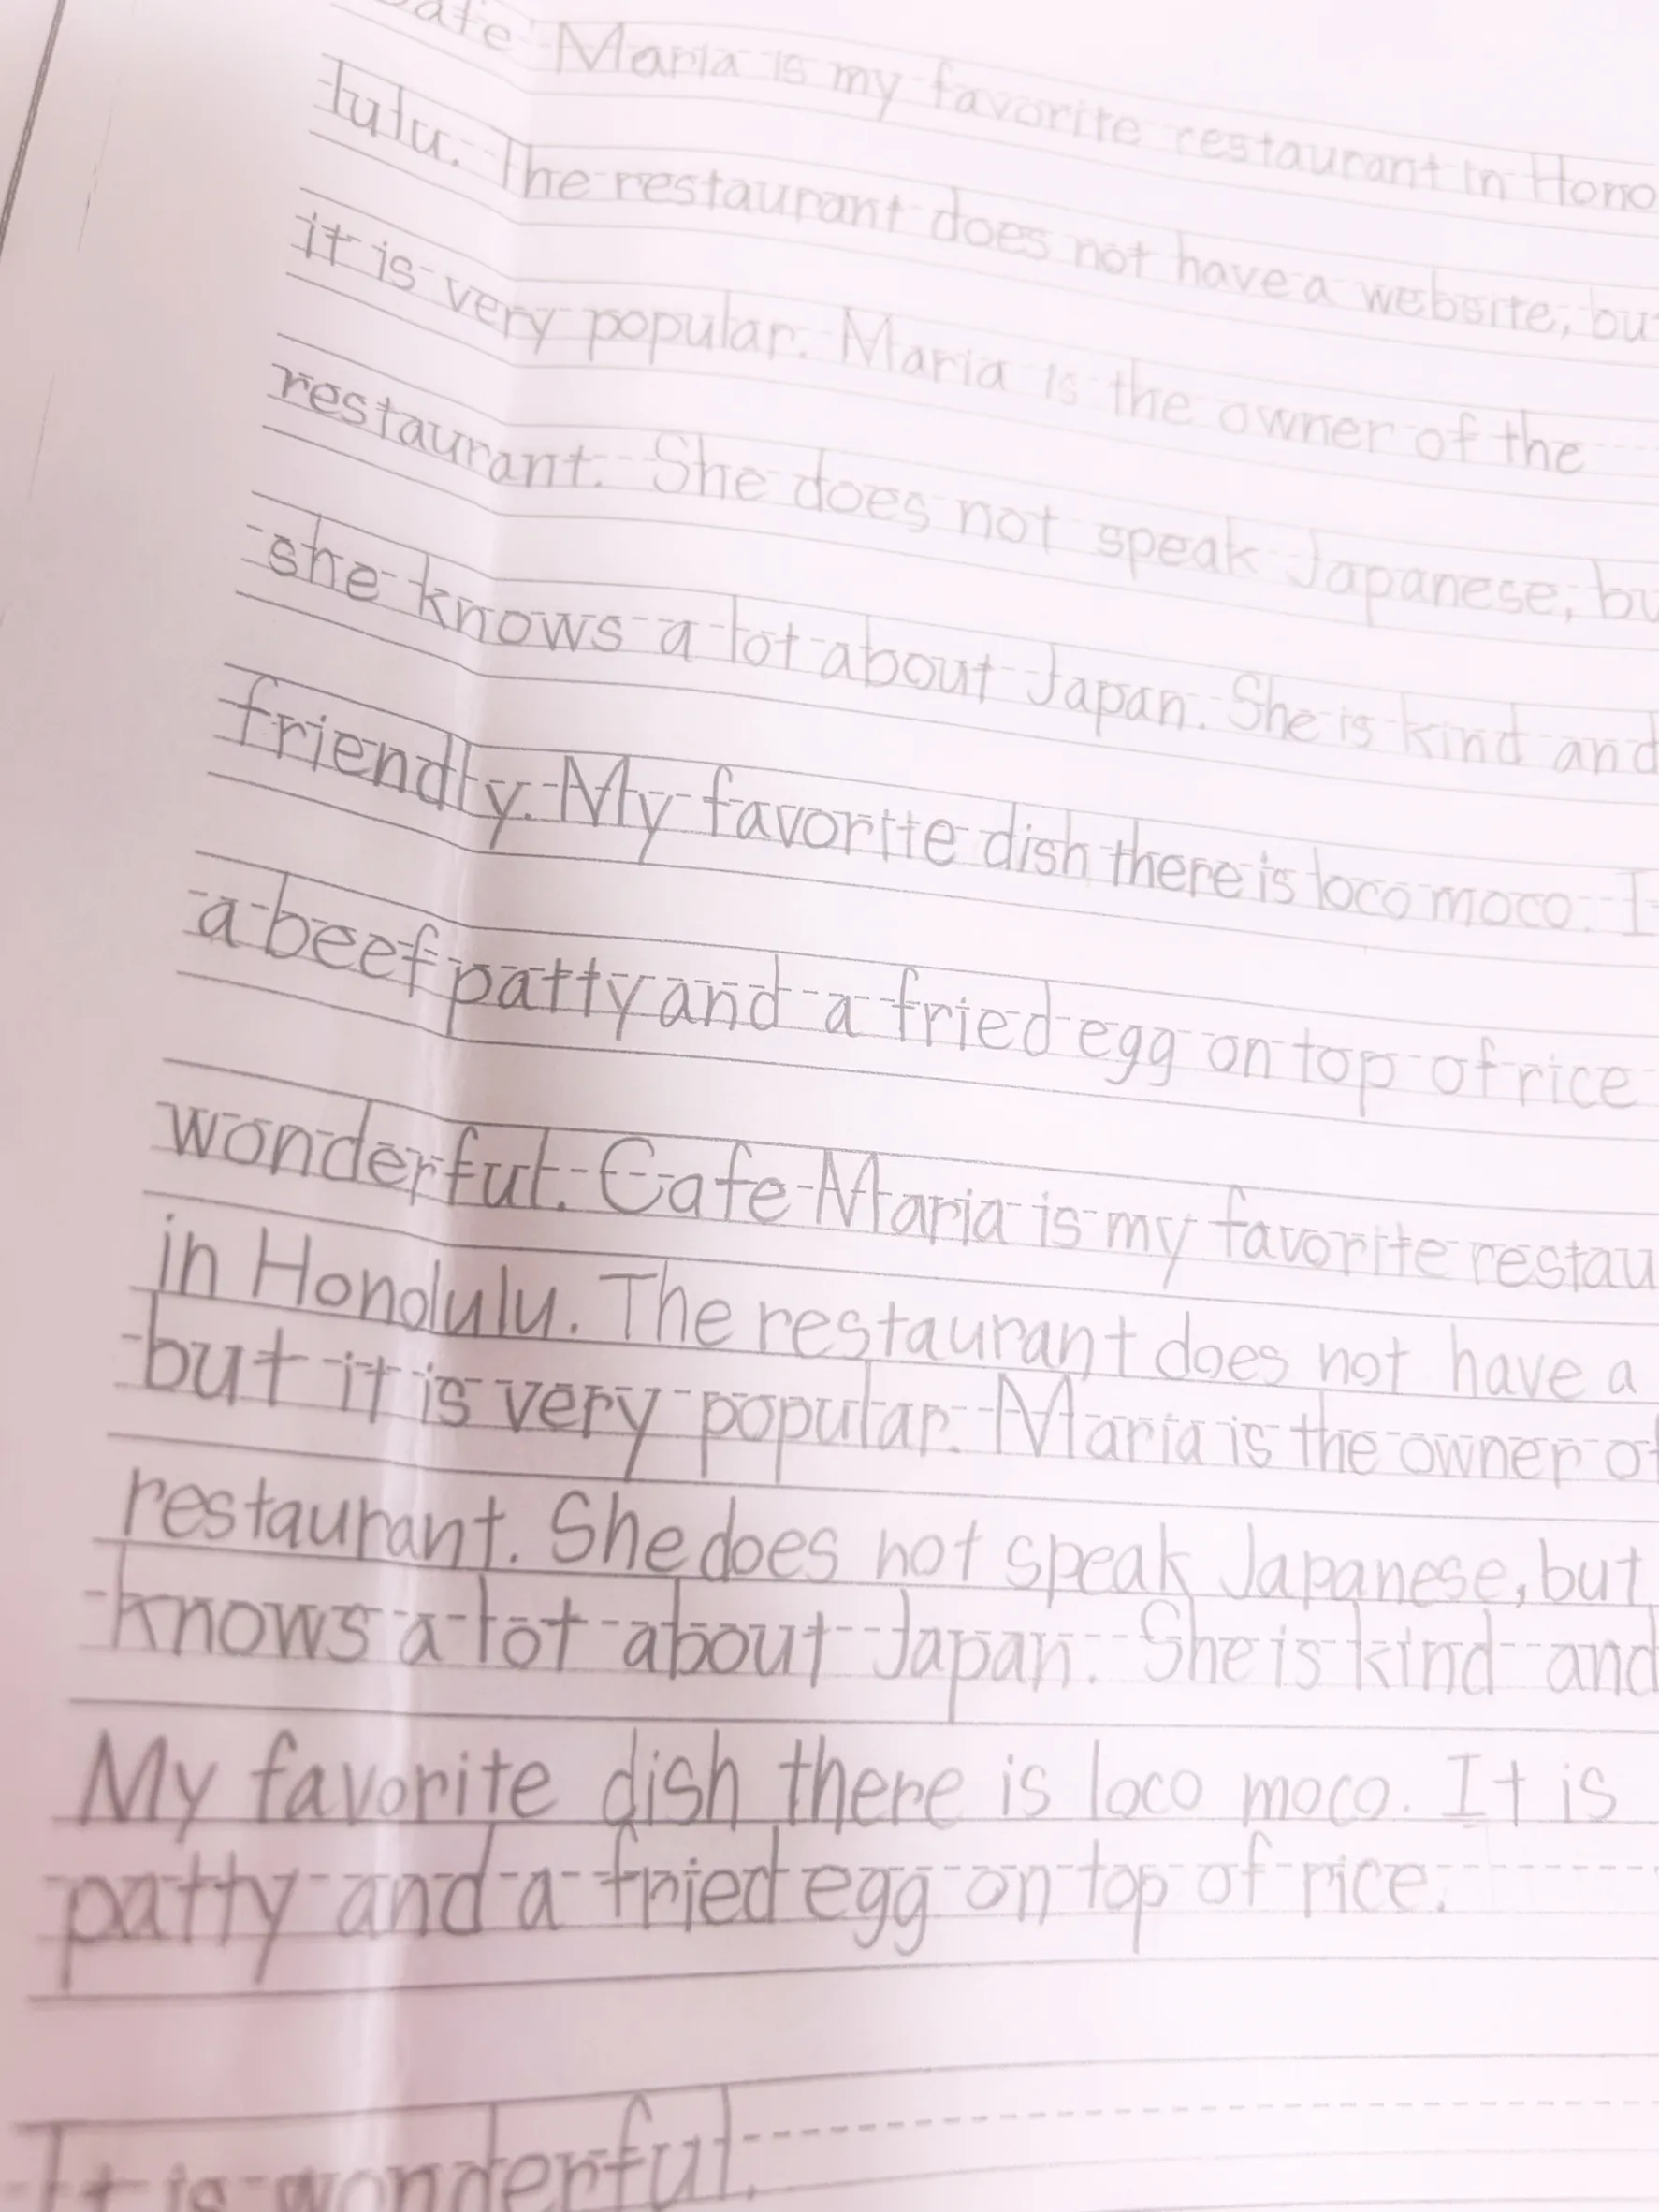 Maria is my favorite restaurant in Hono
lulu. The restaurant does not have a website, bu
it is very popular. Maria is the owner of the
restaurant. She does not speak Japanese, bu
she knows a lot about Japan. She is kind and
friendly. My favorite dish there is loco moco. I
a beef patty and a fried egg on top of rice
wonderful. Cafe Maria is my favorite restau
in Honolulu. The restaurant does not have a
but it is very popular. Maria is the owner of
restaurant. She does not speak Japanese, but
knows a lot about Japan. She is kind and
My favorite dish there is loco moco. It is
patty and a fried egg on top of rice.
It is wonderful.